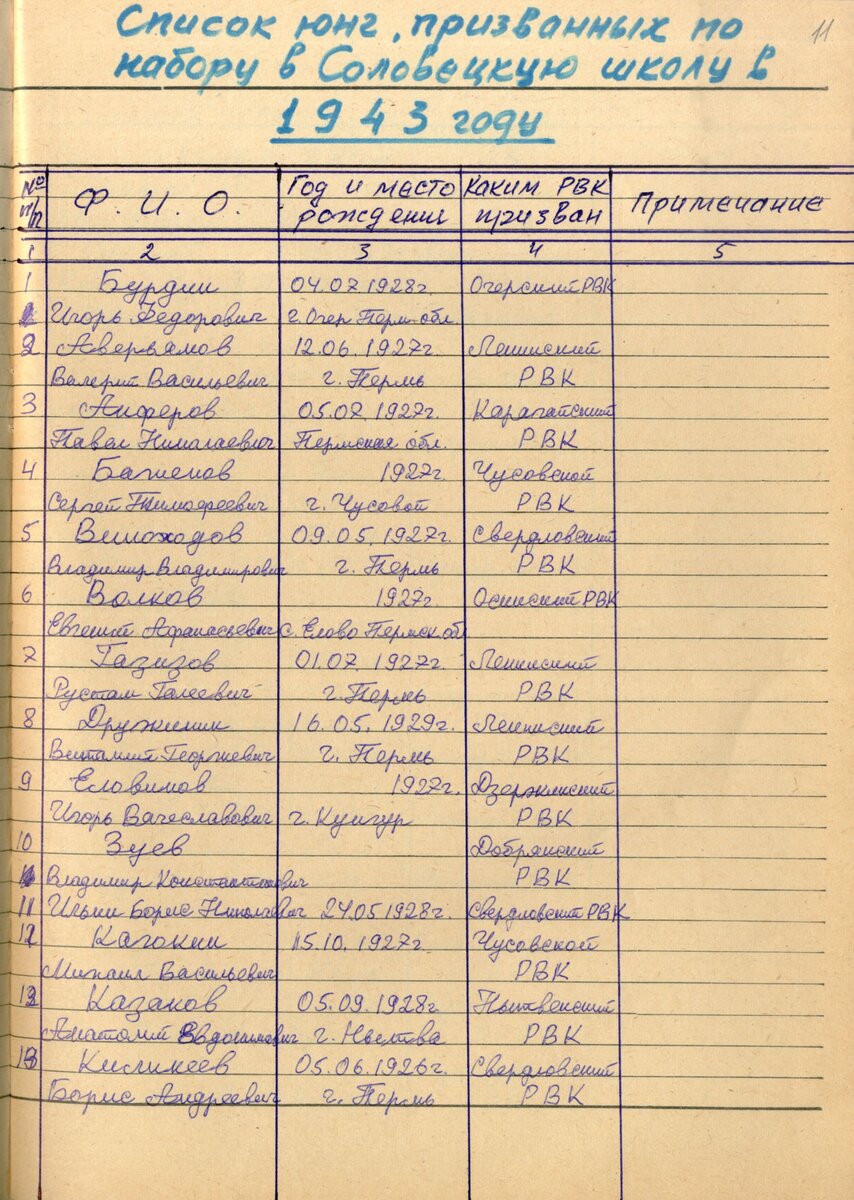 11
Список юнг, призванных по
набору в Соловецкую школу в
1943 году
№ п/п Ф. И. О. Год и место рождения Каким РВК призван Примечание
1 2 3 4 5
1 Бурдин 04.07.1928г. Очерский РВК
Игорь Федорович г. Очер Перм. обл.
2 Аверьянов 12.06.1927г. Ленинский
Валерий Васильевич г. Пермь РВК
3 Анферов 05.07.1927г. Карагайский
Павел Николаевич Пермская обл. РВК
4 Баженов 1927г. Чусовской
Сергей Тимофеевич г. Чусовой РВК
5 Виноходов 09.05.1927г. Свердловский
Владимир Владимирович г. Пермь РВК
6 Волков 1927г. Осинский РВК
Евгений Афанасьевич с. Елово Пермск. обл
7 Газизов 01.07.1927г. Ленинский
Рустам Галеевич г. Пермь РВК
8 Дружинин 16.05.1929г. Ленинский
Виталий Георгиевич г. Пермь РВК
9 Еловиков 1927г. Дзержинский
Игорь Вячеславович г. Кунгур РВК
10 Зуев Добрянский
Владимир Константинович РВК
11 Ильин Борис Николаевич 24.05.1928г. Свердловский РВК
12 15.10.1927г. Чусовской
Михаил Васильевич РВК
13 Казаков 05.09.1928г. Нытвенский
Анатолий Евдокимович г. Нытва РВК
Кисликеев 05.06.1926г. Свердловский
Борис Андреевич г. Пермь РВК